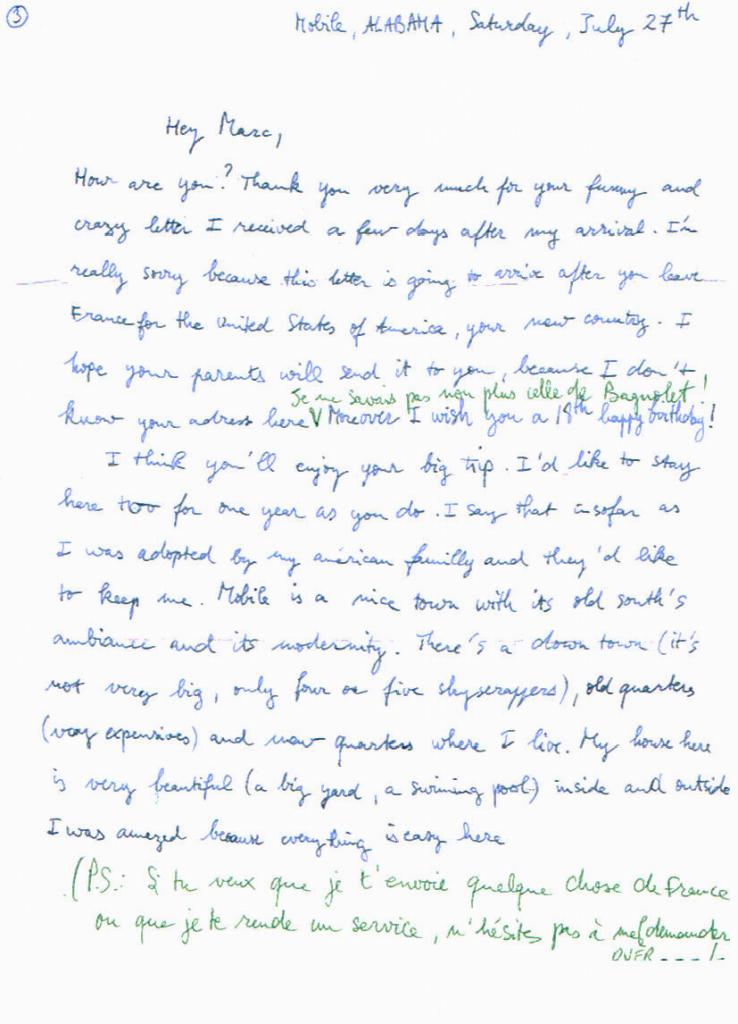 ③
Mobile, ALABAMA, Saturday, July 27th
Hey Marc,
How are you? Thank you very much for your funny and
crazy letter I received a few days after my arrival. I'm
really sorry because this letter is going to arrive after you leave
France for the United States of America, your new country. I
hope your parents will send it to you, because I don't
Je ne savais pas non plus celle de Bagnolet!
know your adress here V Moreover I wish you a 18th happy birthday!
I think you'll enjoy your big tip. I'd like to stay
here too for one year as you do. I say that insofar as
I was adopted by my américan familly and they'd like
to keep me. Mobile is a nice town with its old south's
ambiance and its modernity. There's a down town (it's
not very big, only four or five skyscrappers), old quarters
(very expensives) and new quarters where I live. My house here
is very beautiful (a big yard, a swiming pool) inside and outside
I was amazed because everything is easy here
(P.S.: Si tu veux que je t'envoie quelque chose de France
ou que je te rende un service, n'hésites pas à me demander
OVER ---!